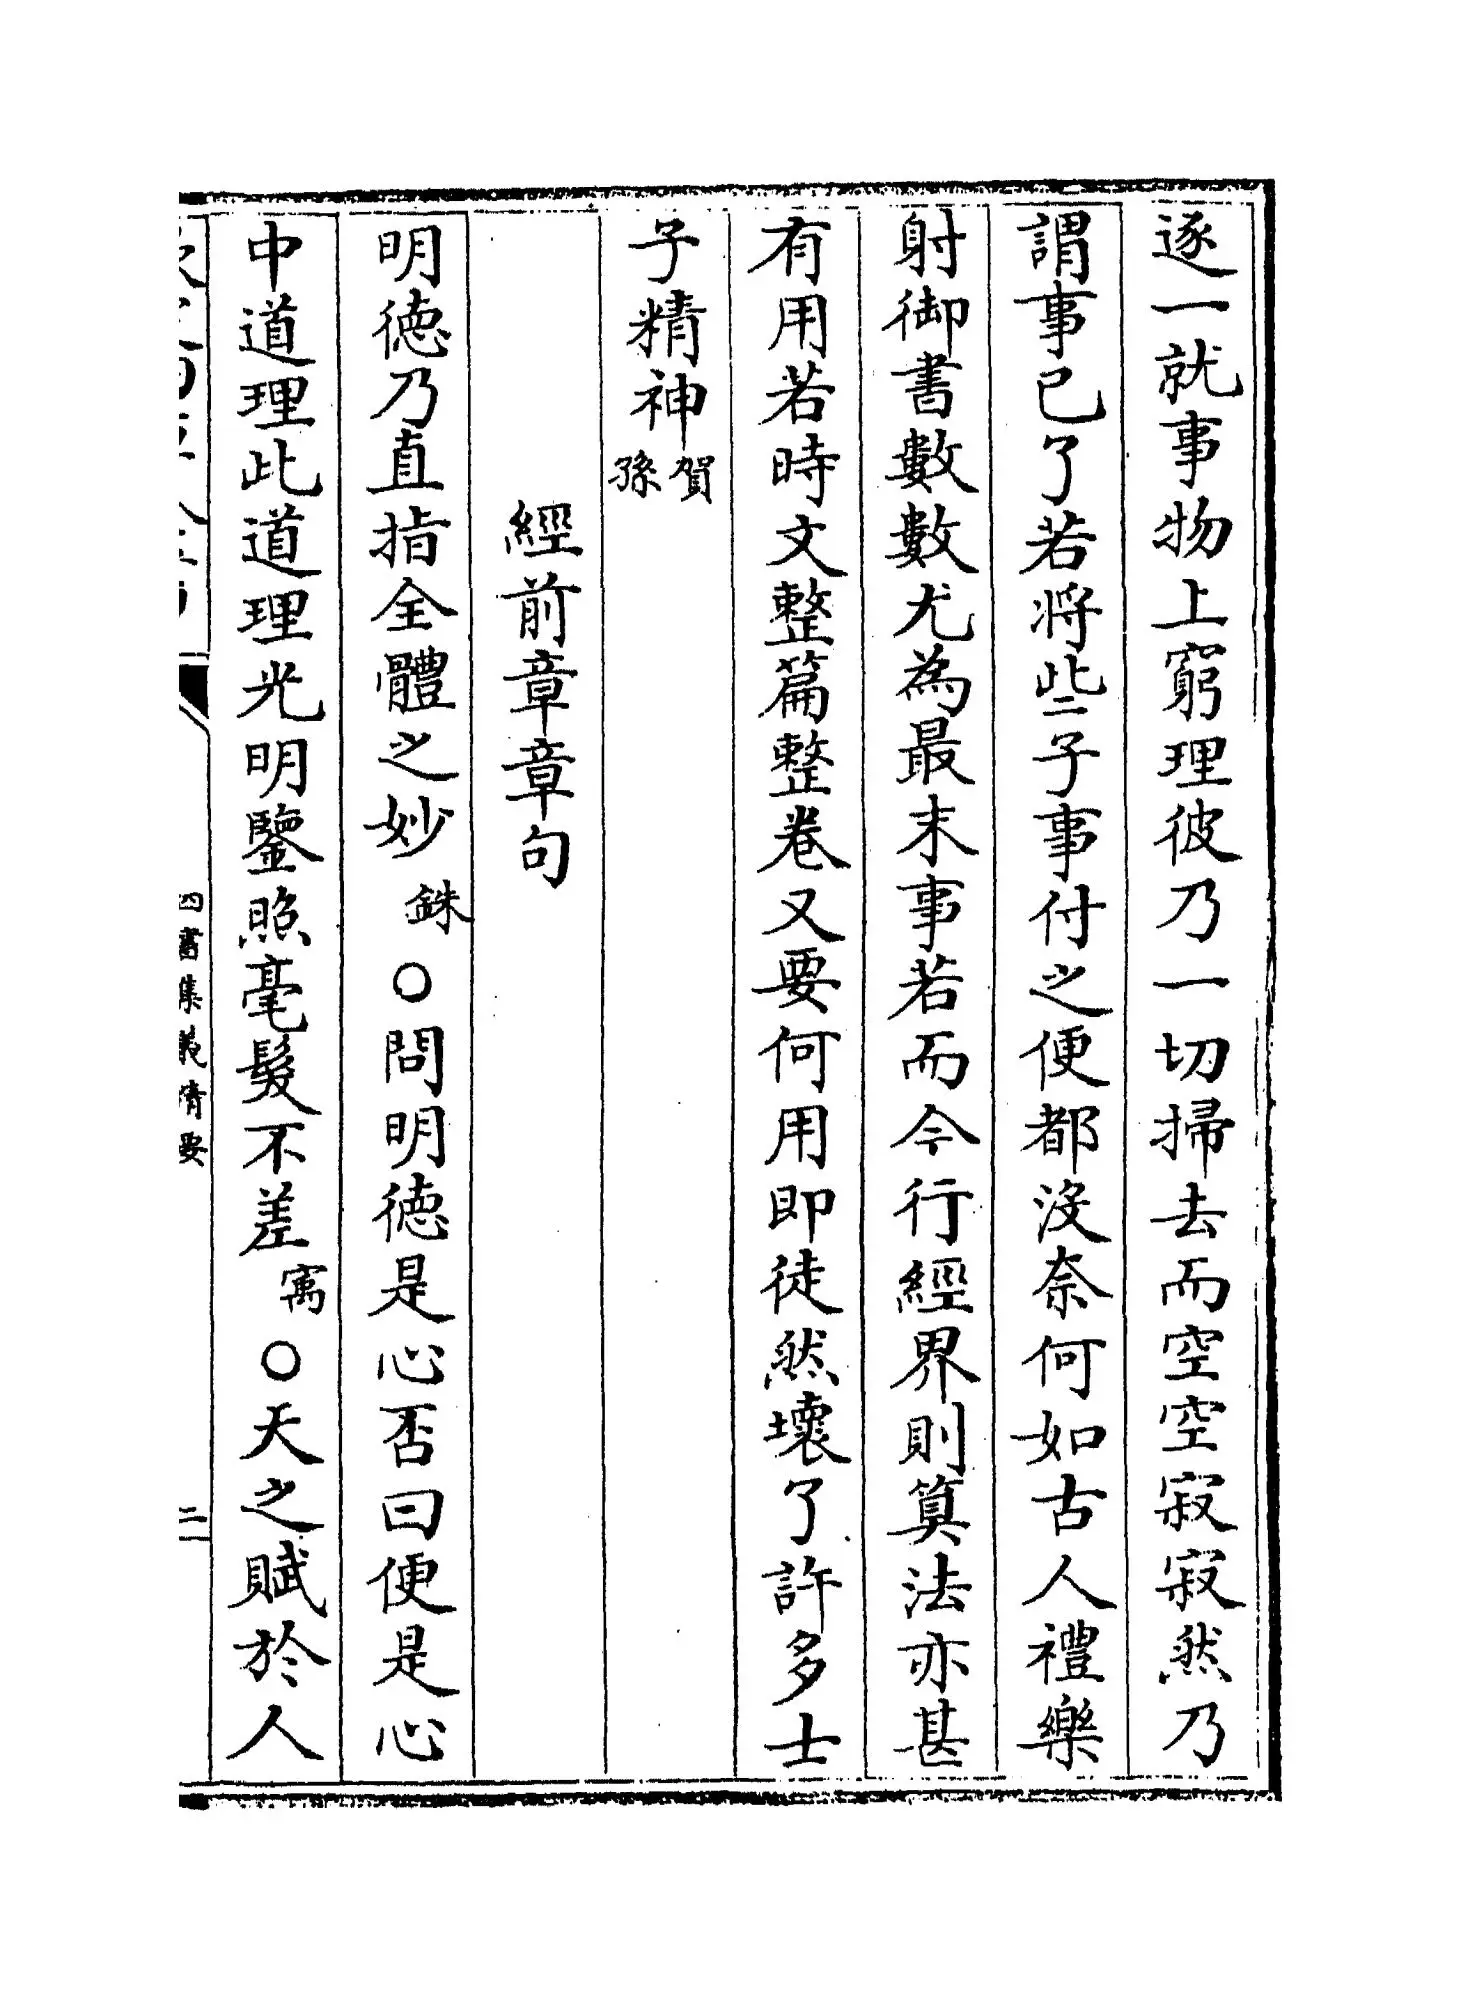 逐一就事物上窮理彼乃一切掃去而空空寂寂然乃
謂事已了若將些子事付之便都沒奈何如古人禮樂
射御書數數尤為最末事若而今行經界則算法亦甚
有用若時文整篇整卷又要何用即徒然壞了許多士
子精神賀孫
經前章章句
明徳乃直指全體之妙銖○問明徳是心否曰便是心
中道理此道理光明鑒照毫髮不差㝢○天之賦於人
四書集義精要
二